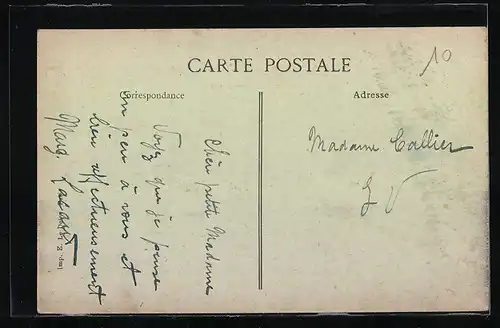 CARTE POSTALE
10
Correspondance
Adresse
Chère petite Madame
Voyez que je pense
un peu à vous et
bien affectueusement
Marg.
Madame Callier